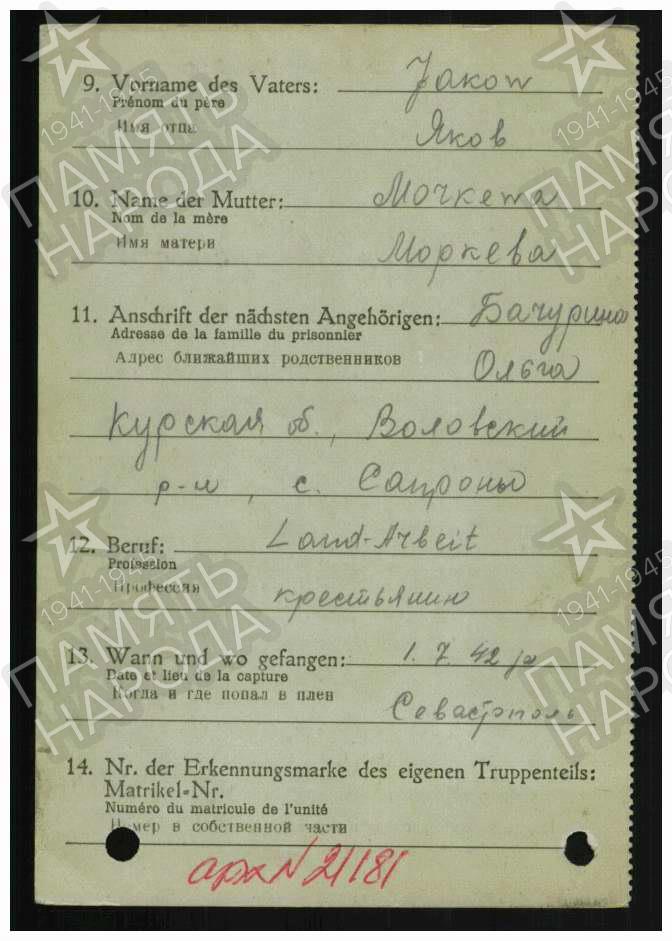 9. Vorname des Vaters: Jakow
Prénom du père
Имя отца Яков
10. Name der Mutter:
Nom de la mère
Имя матери Моркева
11. Anschrift der nächsten Angehörigen: Бачурина
Adresse de la famille du prisonnier
Адрес ближайших родственников Ольга
Курская об., Воловский
р-н, с. Сапроны
12. Beruf: Land-Arbeit
Profession
Профессия крестьянин
13. Wann und wo gefangen: 1. 7. 42
Date et lieu de la capture
Когда и где попал в плен Севастополь
14. Nr. der Erkennungsmarke des eigenen Truppenteils:
Matrikel-Nr.
Numéro du matricule de l'unité
Номер в собственной части
арх N 21181
1941-1945
ПАМЯТЬ
НАРОДА
1941-1945
ПАМЯТЬ
НАРОДА
1941-1945
ПАМЯТЬ
НАРОДА
1941-1945
ПАМЯТЬ
НАРОДА